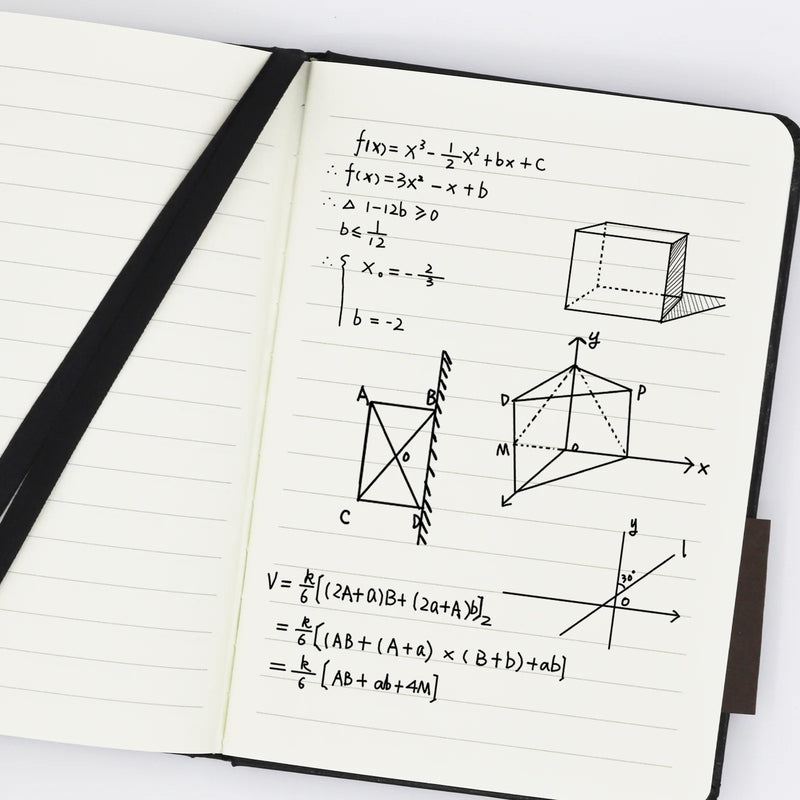 f(x) = x³ - 1/2 x² + bx + c
∴ f(x) = 3x² - x + b
∴ △ 1-12b ≥ 0
b ≤ 1/12
∴ { x₀ = - 2/3
b = -2
y
D
P
M
O
x
A
B
O
C
D
y
l
30°
O
V = k/6 [(2A+a)B + (2a+A)b]₂
= k/6 [(AB + (A+a) × (B+b) + ab]
= k/6 [AB + ab + 4M]